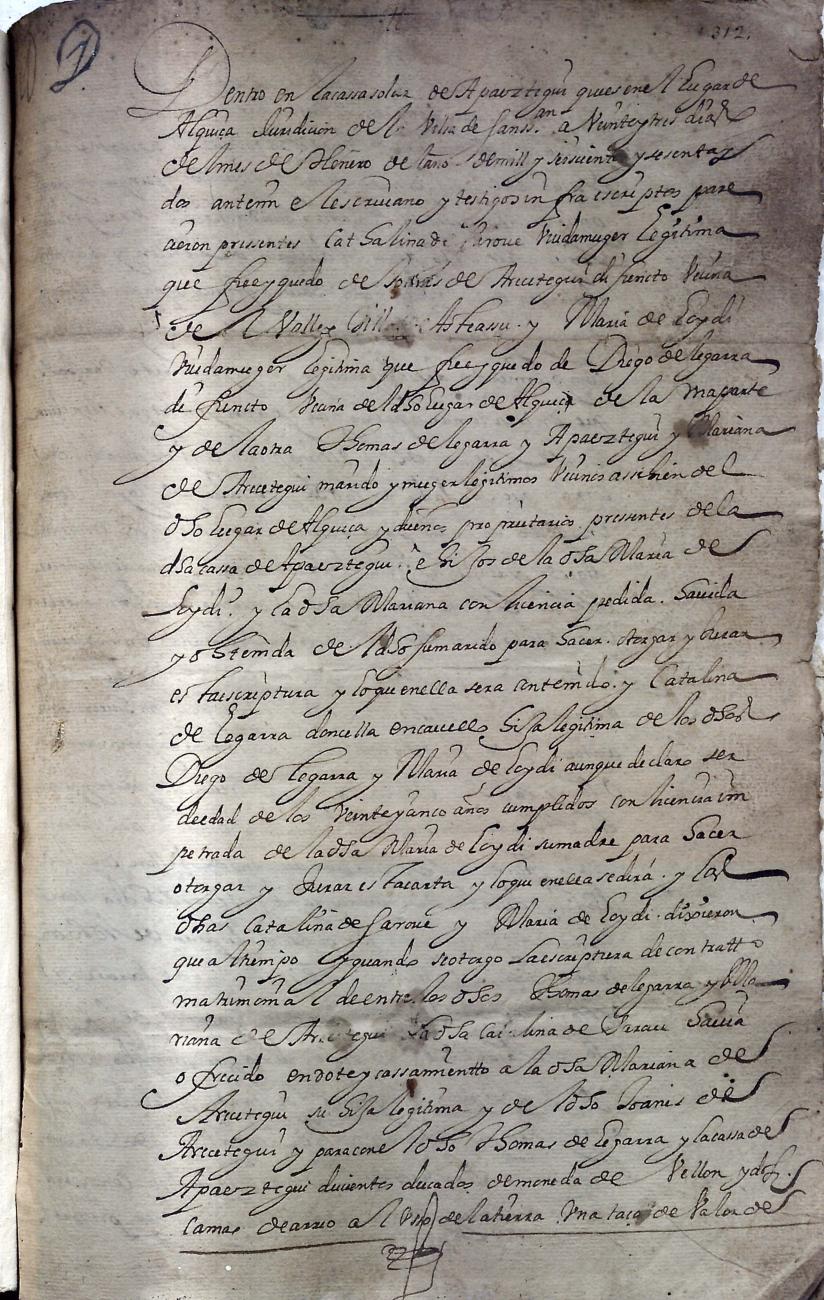 1
312.
Dentro en la cassa solar de Apaeztegui que es en el Lugar de
Alquiça Juridicion de la Villa de San Ssan a Veinte y tres dias
del mes de Henero de l'año de mill y seiscientos y sesenta y
dos ante mi el escriuano y testigos infra escriptos pare
cieron presentes Cathalina de Viuda muger Legitima
que fue y quedo de de Arcetegui difuncto Vecina
de el Valle y de Asteassu. y Maria de Loydi
Viuda muger legitima que fue y quedo de Diego de legarra
difuncto Vecina del dho Lugar de Alquiça de la una parte
y de la otra Thomas de legarra y Apaeztegui y Mariana
de Arcetegui marido y muger legitimos Vecinos assi bien del
dho Lugar de Alquiça y dueños proprietarios presentes de la
dha cassa de Apaeztegui. e hijos de la dha Maria de
Loydi. y la dha Mariana con licencia pedida. hauida
y obtenida de el dho su marido para hacer. otorgar y Jurar
esta escriptura y lo que en ella sera contenido. y Catalina
de Legarra doncella en cauello hija legitima de los dhos
Diego de Legarra y Maria de Loydi aunque declaro ser
de edad de los Veinte y cinco años cumplidos con licencia im
petrada de la dha Maria de Loydi su madre para hacer
otorgar y Jurar esta carta y lo que en ella se dirá. y las
dhas Catalina de y Maria de Loydi. dixieron
que al tiempo y quando se otorgo la escriptura de contratto
matrimonial de entre los dhos Thomas de legarra y Ma
riana de Arcetegui la dha Catalina de hauia
ofrecido en dote y cassamientto a la dha Mariana de
Arcetegui su hija legitima y de el dho Joanis de
Arcetegui y para con el dho Thomas de Legarra y la cassa de
Apaeztegui ducientos ducados de moneda de Vellon y dos
Camas de arreo al Vsso de la tierra Vna taça de Valor de